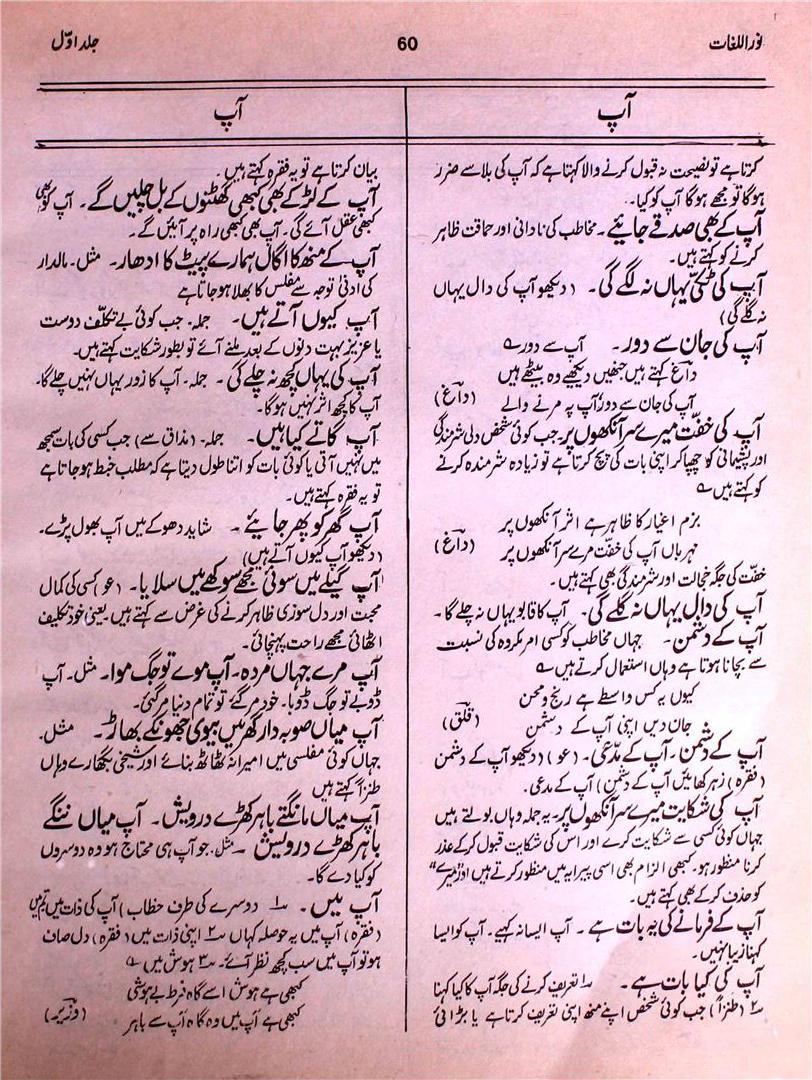 نوراللغات
60
جلد اوّل
آپ
آپ
کرتا ہے تو نصیحت نہ قبول کرنے والا کہتا ہے کہ آپ کی بلا سے ضرر
ہوگا تو مجھے ہوگا آپ کو کیا۔
آپ کے بھی صدقے جائیے۔ مخاطب کی نادانی اور حماقت ظاہر
کرنے کو کہتے ہیں۔
آپ کی ٹکّی یہاں نہ لگے گی۔ (دیکھو آپ کی دال یہاں
نہ گلے گی)
آپ کی جان سے دور۔ آپ سے دور ؎
داغؔ کہتے ہیں جنھیں دیکھیے وہ بیٹھے ہیں
آپ کی جان سے دور آپ پہ مرنے والے (داغؔ)
آپ کی خفّت میرے سر آنکھوں پر۔ جب کوئی شخص دلی شرمندگی
اور پشیمانی کو چھپا کر اپنی بات کی پچ کرتا ہے تو زیادہ شرمندہ کرنے
کو کہتے ہیں ؎
بزم اغیار کا ظاہر ہے اثر آنکھوں پر
مہرباں آپ کی خفّت مرے سر آنکھوں پر (داغؔ)
خفّت کی جگہ خجالت اور شرمندگی بھی کہتے ہیں۔
آپ کی دال یہاں نہ گلے گی۔ آپ کا قابو یہاں نہ چلے گا۔
آپ کے دشمن۔ جہاں مخاطب کو کسی امر مکروہ کی نسبت
سے بچانا ہوتا ہے وہاں استعمال کرتے ہیں ؎
کیوں یہ کس واسطے ہے رنج و محن
جان دیں اپنی آپ کے دشمن (قلقؔ)
آپ کے دشمن۔ آپ کے مدّعی۔ (عو) (دیکھو آپ کے دشمن
(فقرہ) زہر کھائیں آپ کے دشمن) آپ کے مدعی۔
آپ کی شکایت میرے سر آنکھوں پر۔ یہ جملہ وہاں بولتے ہیں
جہاں کوئی کسی سے شکایت کرے اور اس کی شکایت قبول کر کے عذر
کرنا منظور ہو۔ کبھی الزام بھی اسی پیرایہ میں منظور کرتے ہیں اور "میرے"
کو حذف کر کے بھی کہتے ہیں۔
آپ کے فرمانے کی یہ بات ہے۔ آپ ایسا نہ کہیے۔ آپ کو ایسا
کہنا زیبا نہیں۔
آپ کی کیا بات ہے۔ ۱؎ تعریف کرنے کی جگہ آپ کا کیا کہنا
۲؎ (طنزاً) جب کوئی شخص اپنے منھ اپنی تعریف کرتا ہے یا بڑائی
بیان کرتا ہے تو یہ فقرہ کہتے ہیں۔
آپ کے لڑکے بھی کبھی گھٹنوں کے بل چلیں گے۔ آپ کو بھی
کبھی عقل آئے گی۔ آپ بھی کبھی راہ پر آئیں گے۔
آپ کے منھ کا اگال ہمارے پیٹ کا ادھار۔ مثل۔ مالدار
کی ادنیٰ توجہ سے مفلس کا بھلا ہو جاتا ہے
آپ کیوں آتے ہیں۔ جملہ۔ جب کوئی بے تکلّف دوست
یا عزیز بہت دنوں کے بعد ملنے آئے تو بطور شکایت کہتے ہیں۔
آپ کی یہاں کچھ نہ چلے گی۔ جملہ۔ آپ کا زور یہاں نہیں چلے گا۔
آپ کا کچھ اثر نہیں ہوگا۔
آپ گاتے کیا ہیں۔ جملہ۔ (مذاق سے) جب کسی کی بات سمجھ
میں نہیں آتی یا کوئی بات کو اتنا طول دیتا ہے کہ مطلب خبط ہو جاتا ہے
تو یہ فقرہ کہتے ہیں۔
آپ گھر کو پھر جایئے۔ شاید دھوکے میں آپ بھول پڑے۔
(دیکھو آپ کیوں آتے ہیں)
آپ گیلے میں سوئی مجھے سوکھے میں سلایا۔ (عو) کسی کی کمال
محبت اور دل سوزی ظاہر کرنے کی غرض سے کہتے ہیں۔ یعنی خود تکلیف
اٹھائی مجھے راحت پہنچائی۔
آپ مرے جہاں مردہ۔ آپ موے تو جگ موا۔ مثل۔ آپ
ڈوبے تو جگ ڈوبا۔ خود مر گئے تو تمام دنیا مر گئی۔
آپ میاں صوبہ دار گھر میں بیوی جھونکے بھاڑ۔ مثل۔
جہاں کوئی مفلسی میں امیرانہ ٹھاٹھ بنائے اور شیخی بگھارے وہاں
طنزاً کہتے ہیں
آپ میاں مانگتے باہر کھڑے درویش۔ آپ میاں ننگے
باہر کھڑے درویش۔ مثل۔ جو آپ ہی محتاج ہو وہ دوسروں
کو کیا دے گا۔
آپ میں۔ ۱؎ دوسرے کی طرف خطاب) آپ کی ذات میں تم میں
(فقرہ) آپ میں یہ حوصلہ کہاں ۲؎ اپنی ذات میں (فقرہ) دل صاف
ہو تو آپ میں سب کچھ نظر آئے۔ ۳؎ ہوش میں ؎
کبھی ہے ہوش اسے گاہ فرط بے ہوشی
کبھی ہے آپ میں وہ گاہ آپ سے باہر (وزیرؔ)